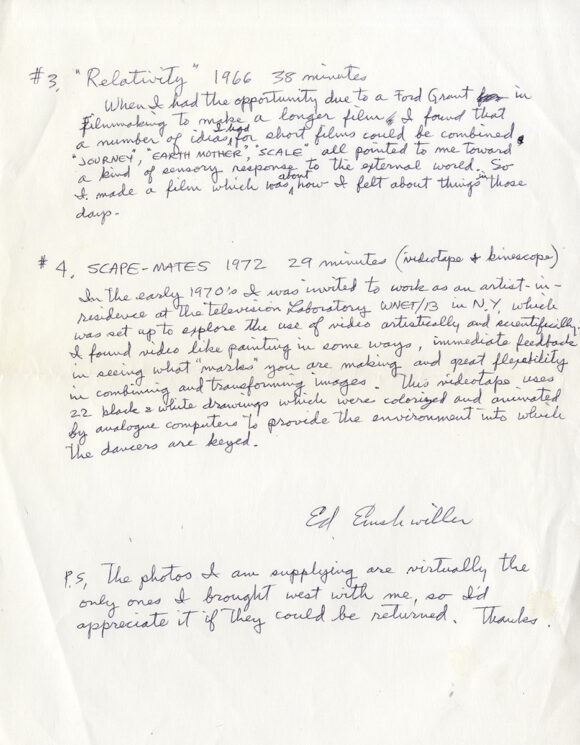 #3, "Relativity" 1966 38 minutes
When I had the opportunity due to a Ford Grant in
Filmmaking to make a longer film, I found that
a number of ideas, I had, for short films could be combined,
"JOURNEY", "EARTH MOTHER", "SCALE" all pointed to me toward
a kind of sensory response to the external world. So
I made a film which was about how I felt about things in those
days.
#4, SCAPE-MATES 1972 29 minutes (videotape & kinescope)
In the early 1970's I was invited to work as an artist-in-
residence at the television Laboratory WNET/13 in N.Y, which
was set up to explore the use of video artistically and scientifically.
I found video like painting in some ways, immediate feedback
in seeing what "marks" you are making and great flexibility
in combining and transforming images. This videotape uses
22 black & white drawings which were colorized and animated
by analogue computers to provide the environment into which
the dancers are keyed.
Ed Emshwiller
P.S, The photos I am supplying are virtually the
only ones I brought west with me, so I'd
appreciate it if they could be returned. Thanks.